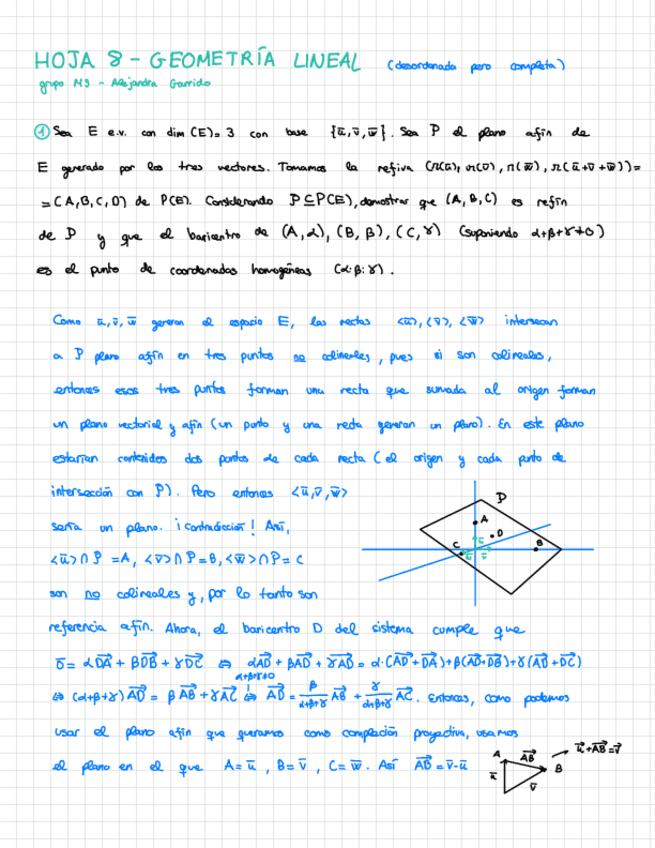 HOJA 8 - GEOMETRÍA LINEAL (desordenada pero completa)
grupo M3 - Alejandra Garrido
① Sea E e.v. con dim(E)=3 con base {ū,v̄,w̄}. Sea P el plano afín de
E generado por los tres vectores. Tomamos la refiva (π(ū), π(v̄), π(w̄), π(ū+v̄+w̄))=
=(A,B,C,D) de P(E). Considerando P⊆P(E), demostrar que (A,B,C) es refin
de P y que el baricentro de (A,α), (B,β), (C,γ) (suponiendo α+β+γ≠0)
es el punto de coordenadas homogéneas (α:β:γ).
Como ū,v̄,w̄ generan el espacio E, las rectas <ū>,<v̄>,<w̄> intersecan
a P plano afín en tres puntos no colineales, pues si son colineales,
entonces esos tres puntos forman una recta que sumada al origen forman
un plano vectorial y afín (un punto y una recta generan un plano). En este plano
estarían contenidos dos puntos de cada recta (el origen y cada punto de
intersección con P). Pero entonces <ū,v̄,w̄>
sería un plano. ¡Contradicción! Así,
<ū>∩P=A, <v̄>∩P=B, <w̄>∩P=C
son no colineales y, por lo tanto son
P
A
D
C
B
ū
v̄
referencia afín. Ahora, el baricentro D del sistema cumple que
0̄= αDA⃗ + βDB⃗ + γDC⃗ ⇔ αAD⃗ + βAD⃗ + γAD⃗ = α·(AD⃗+DA⃗)+β(AD⃗+DB⃗)+γ(AD⃗+DC⃗)
α+β+γ≠0
⇔ (α+β+γ)AD⃗ = βAB⃗+γAC⃗ ⇔ AD⃗ = β/(α+β+γ) AB⃗ + γ/(α+β+γ) AC⃗. Entonces, como podemos
usar el plano afín que queramos como compleción proyectiva, usamos
el plano en el que A=ū, B=v̄, C=w̄. Así AB⃗=v̄-ū
A AB⃗ B ū v̄
ū+AB⃗=v̄